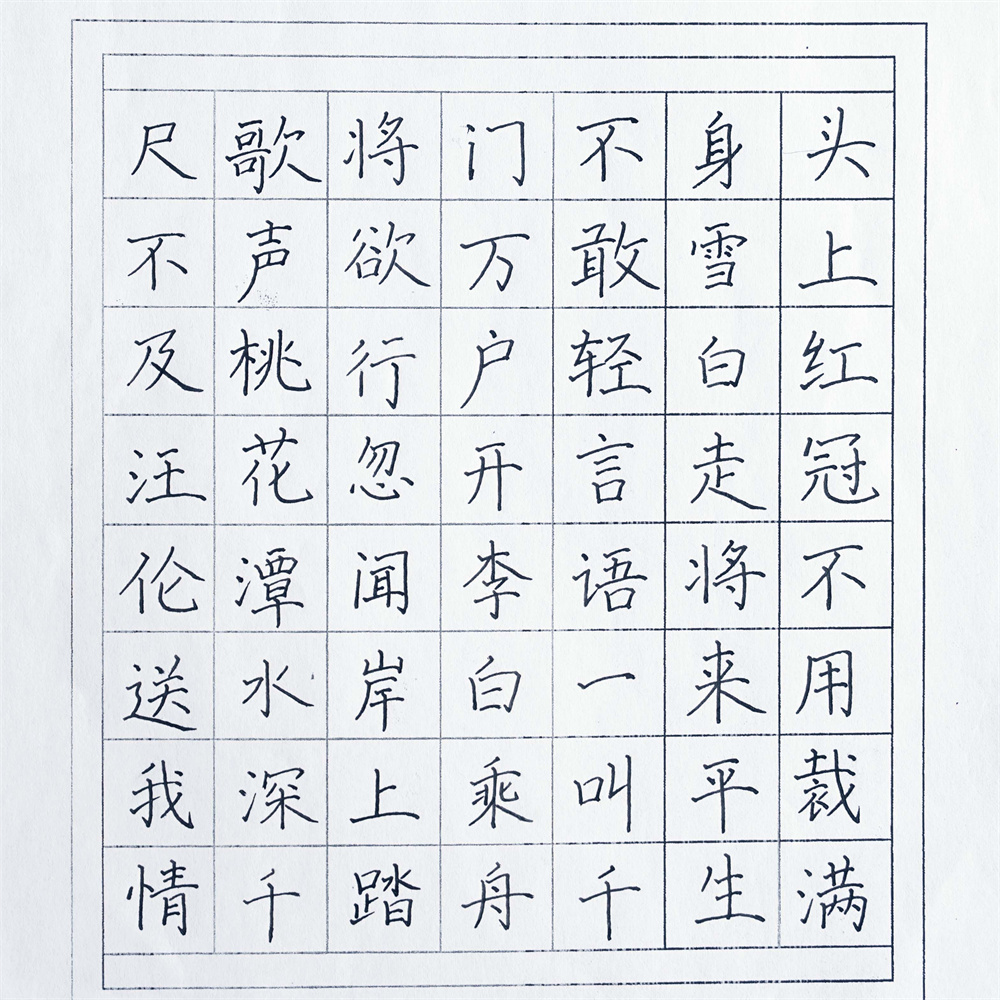 头上红冠不用裁满
身雪白走将来平生
不敢轻言语一叫千
门万户开李白乘舟
将欲行忽闻岸上踏
歌声桃花潭水深千
尺不及汪伦送我情